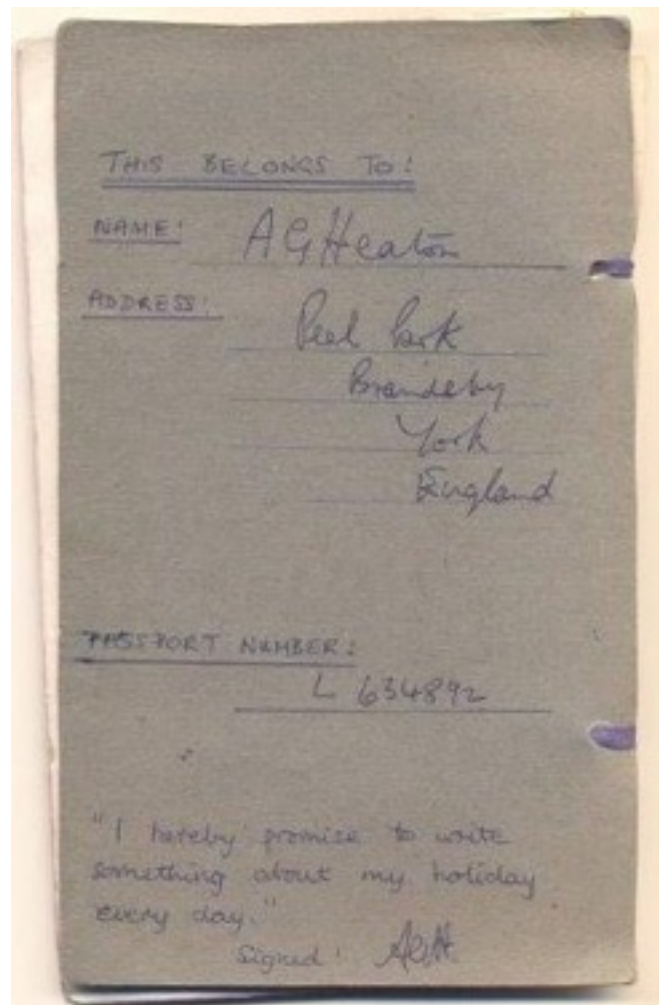 THIS BELONGS TO:
NAME: A G Heaton
ADDRESS: Peel Park
Brandsby
York
England
PASSPORT NUMBER:
L 634892
"I hereby promise to write
something about my holiday
every day."
Signed: AGH.